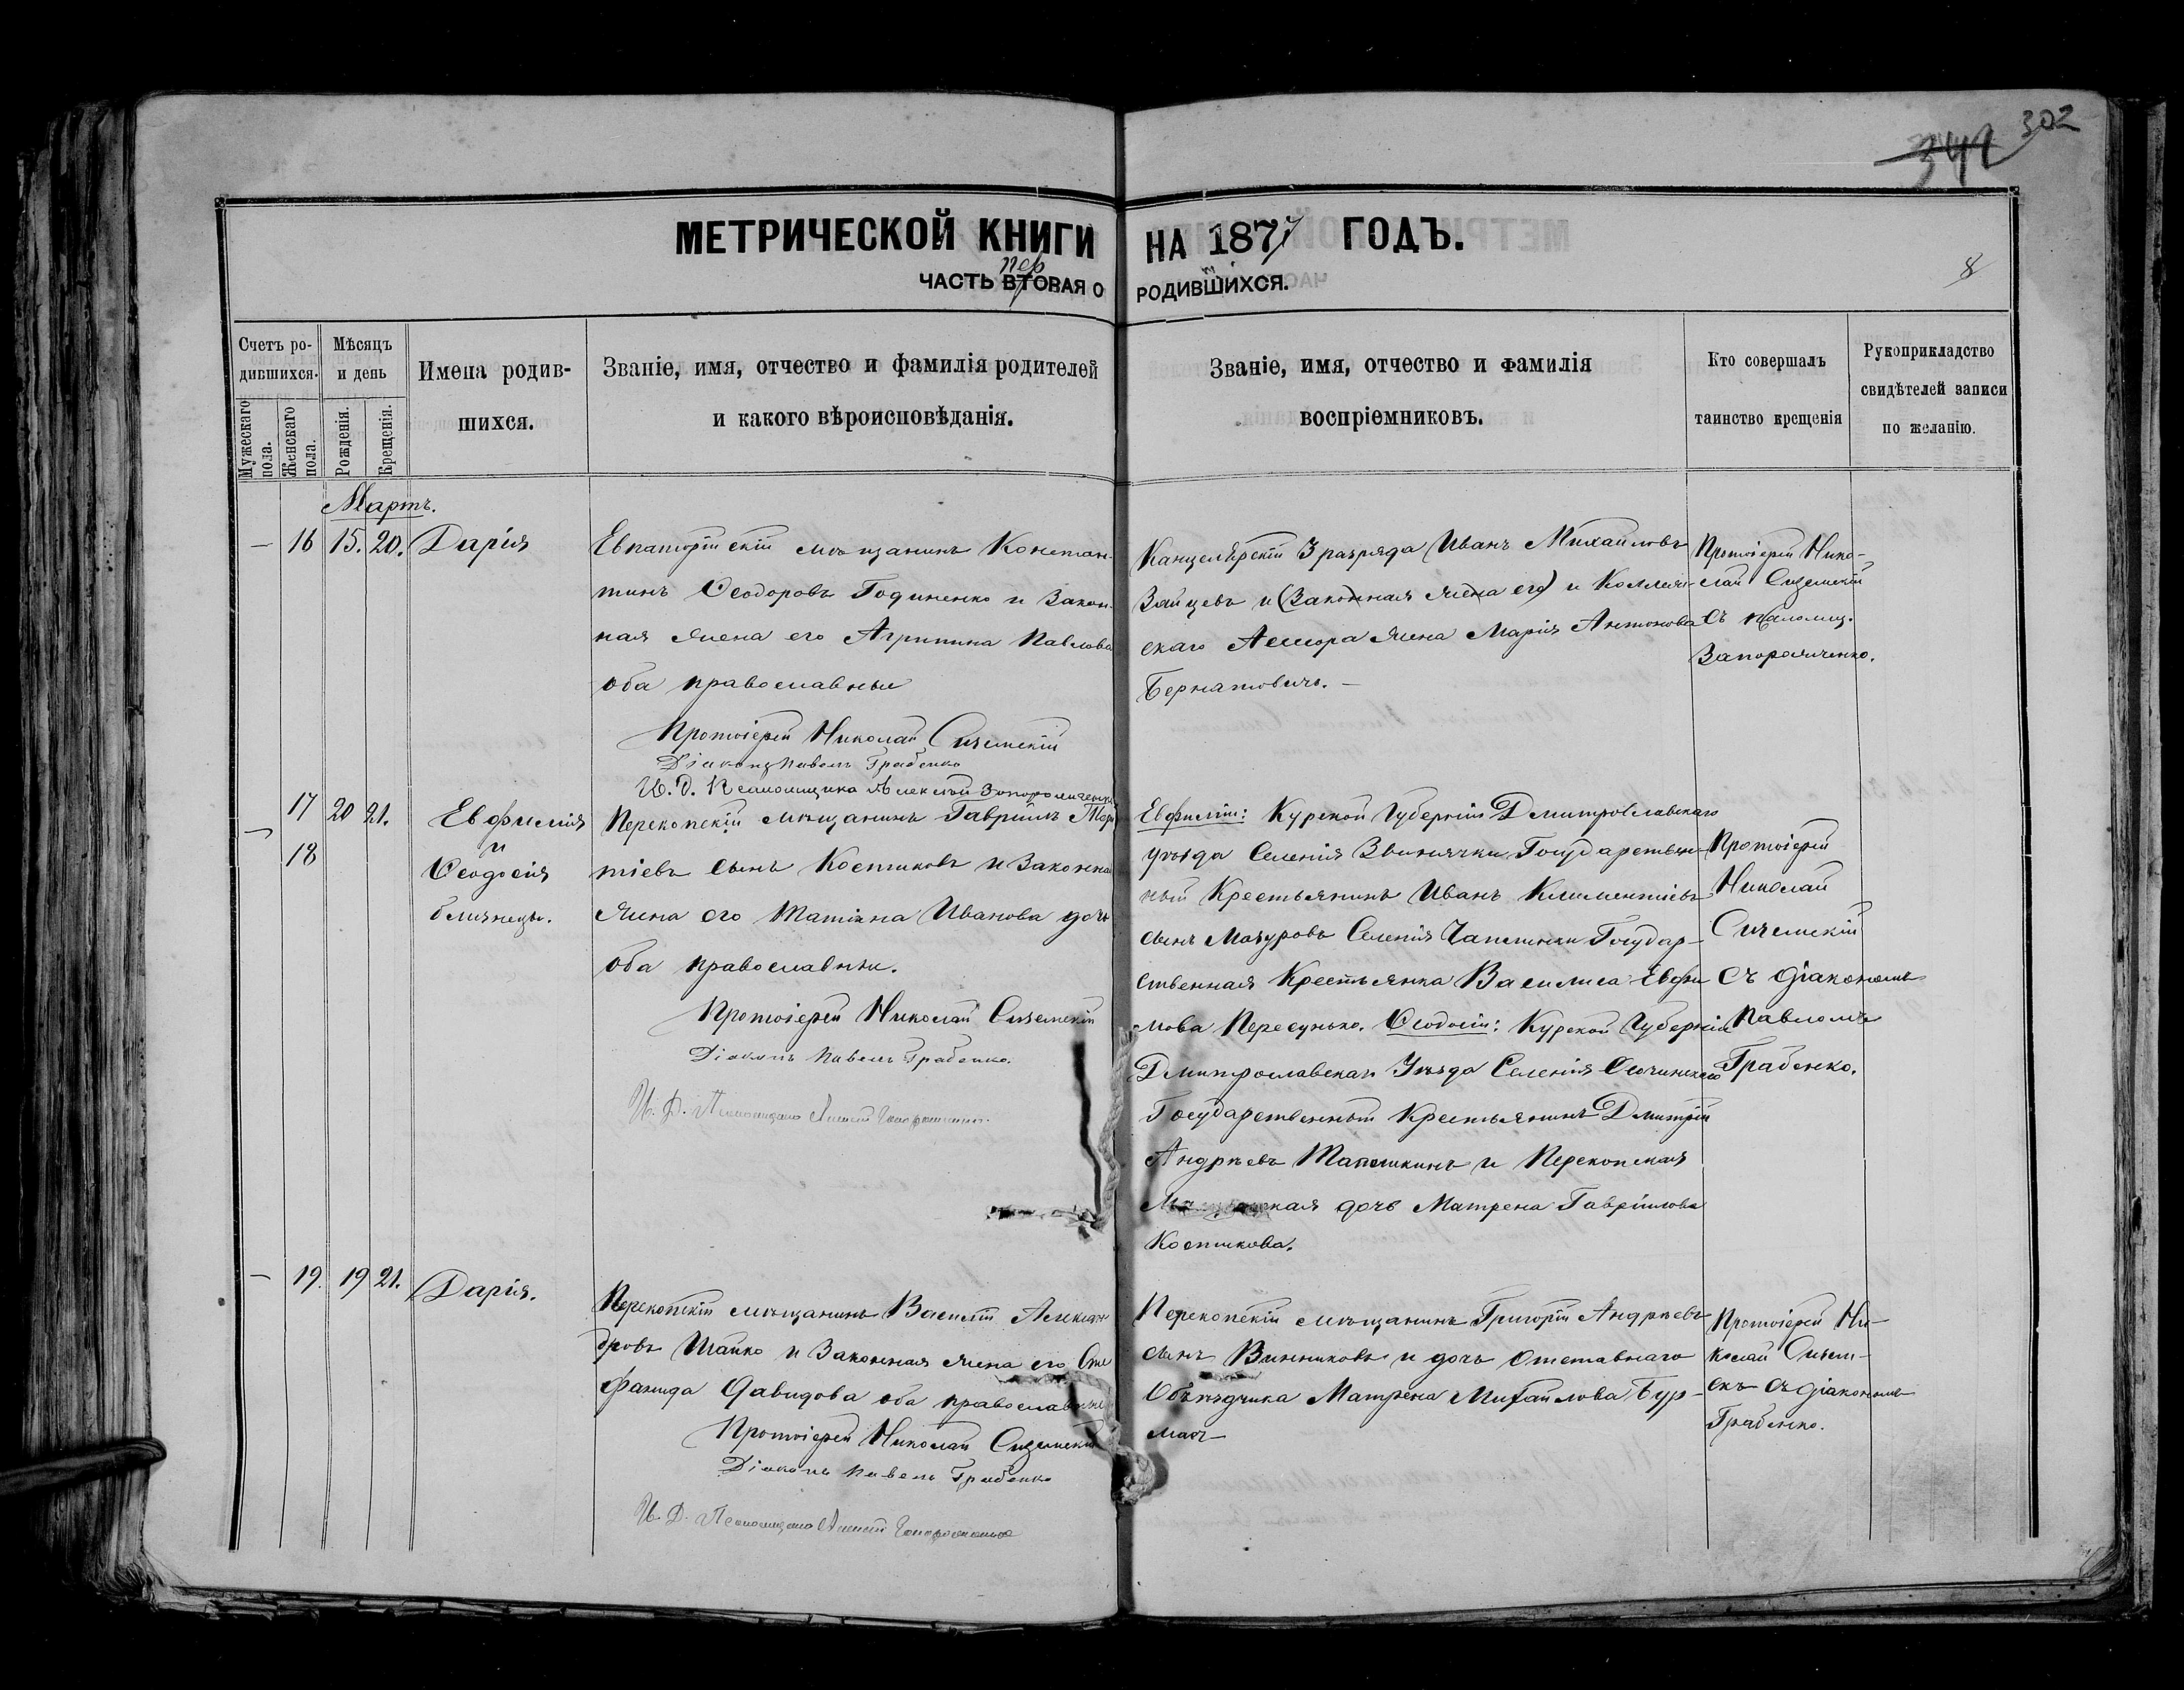 302
342
МЕТРИЧЕСКОЙ КНИГИ НА 1877 ГОДЪ.
ЧАСТЬ ВТОРАЯ О РОДИВШИХСЯ.
пер
8
Счетъ ро-
дившихся.
Мужескаго пола.
Женскаго пола.
Мѣсяцъ
и день
Рожденія.
Крещенія.
Имена родив-
шихся.
Званіе, имя, отчество и фамилія родителей
и какого вѣроисповѣданія.
Званіе, имя, отчество и фамилія
воспріемниковъ.
Кто совершалъ
таинство крещенія
Рукоприкладство
свидѣтелей записи
по желанію.
Мартъ.
— 16 15. 20. Дарія
Евпаторійскій мѣщанинъ Констан-
тинъ Ѳеодоровъ Годиненко и Закон-
ная жена его Агрипина Павлова
оба православные
Протоіерей Николай Сиземскій
Діаконъ Павелъ Грабенко
И. Д. Псаломщика Алексѣй Запорожченко
Канцелярскій 3 разряда Иванъ Михайловъ
Зайцевъ и (Законная жена его) и Коллежс-
скаго Асессора жена Марія Антонова
Бернатовичъ. —
Протоіерей Нико-
лай Сиземскій
съ псаломщ.
Запорожченко.
17 20 21. Евфимія
— и
18 Ѳеодосія
близнецы.
Перекопскій мѣщанинъ Гавріилъ
тіевъ сынъ Костиковъ и Законная
жена его Татіана Иванова дочь
оба православные.
Протоіерей Николай Сиземскій
Діаконъ Павелъ Грабенко.
И. Д. Псаломщика Алексѣй Запорожченко.
Евфиміи: Курской Губерніи Дмитрославскаго
уѣзда Селенія Звинячки Государствен-
ный Крестьянинъ Иванъ Климентіевъ
сынъ Мазуровъ Селенія Чаплинки Государ-
ственная Крестьянка Василиса Евфи
мова Пересунько. Ѳеодосіи: Курской Губерніи
Дмитрославскаго Уѣзда Селенія
Государственный Крестьянинъ Дмитрій
Андрѣевъ Тапешкинъ и Перекопская
дочь Матрена Гавріилова
Костикова.
Протоіерей
Николай
Сиземскій
съ діакономъ
Павломъ
Грабенко.
— 19. 19 21. Дарія.
Перекопскій мѣщанинъ Василій Алексан
дровъ Шайко и Законная жена его Сте
фанида Давидова оба православные
Протоіерей Николай Сиземскій
Діаконъ Павелъ Грабенко
И. Д. Псаломщика Алексѣй Запорожченко
Перекопскій мѣщанинъ Григорій Андрѣевъ
сынъ Винниковъ и дочь Отставнаго
Объѣздчика Матрена Михайлова Бур-
мач
Протоіерей Ни-
колай Сизем-
скъ съ діакономъ
Грабенко.